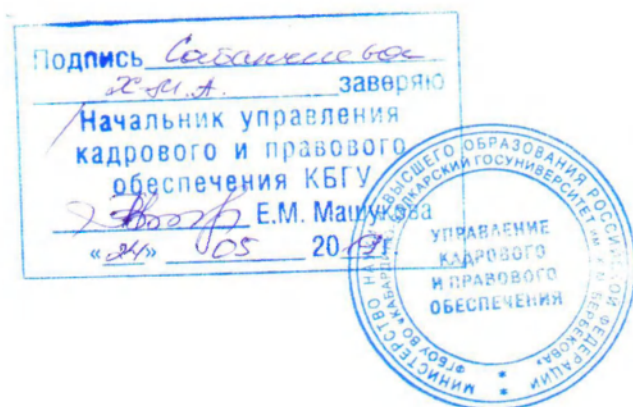 Подпись Сабанчиева
Х-М.А. заверяю
Начальник управления
кадрового и правового
обеспечения КБГУ
Е.М. Машукова
«24» 05 2019г.
МИНИСТЕРСТВО НАУКИ И ВЫСШЕГО ОБРАЗОВАНИЯ РОССИЙСКОЙ ФЕДЕРАЦИИ
ФГБОУ ВО «КАБАРДИНО-БАЛКАРСКИЙ ГОСУНИВЕРСИТЕТ им. Х.М. БЕРБЕКОВА»
УПРАВЛЕНИЕ
КАДРОВОГО
И ПРАВОВОГО
ОБЕСПЕЧЕНИЯ